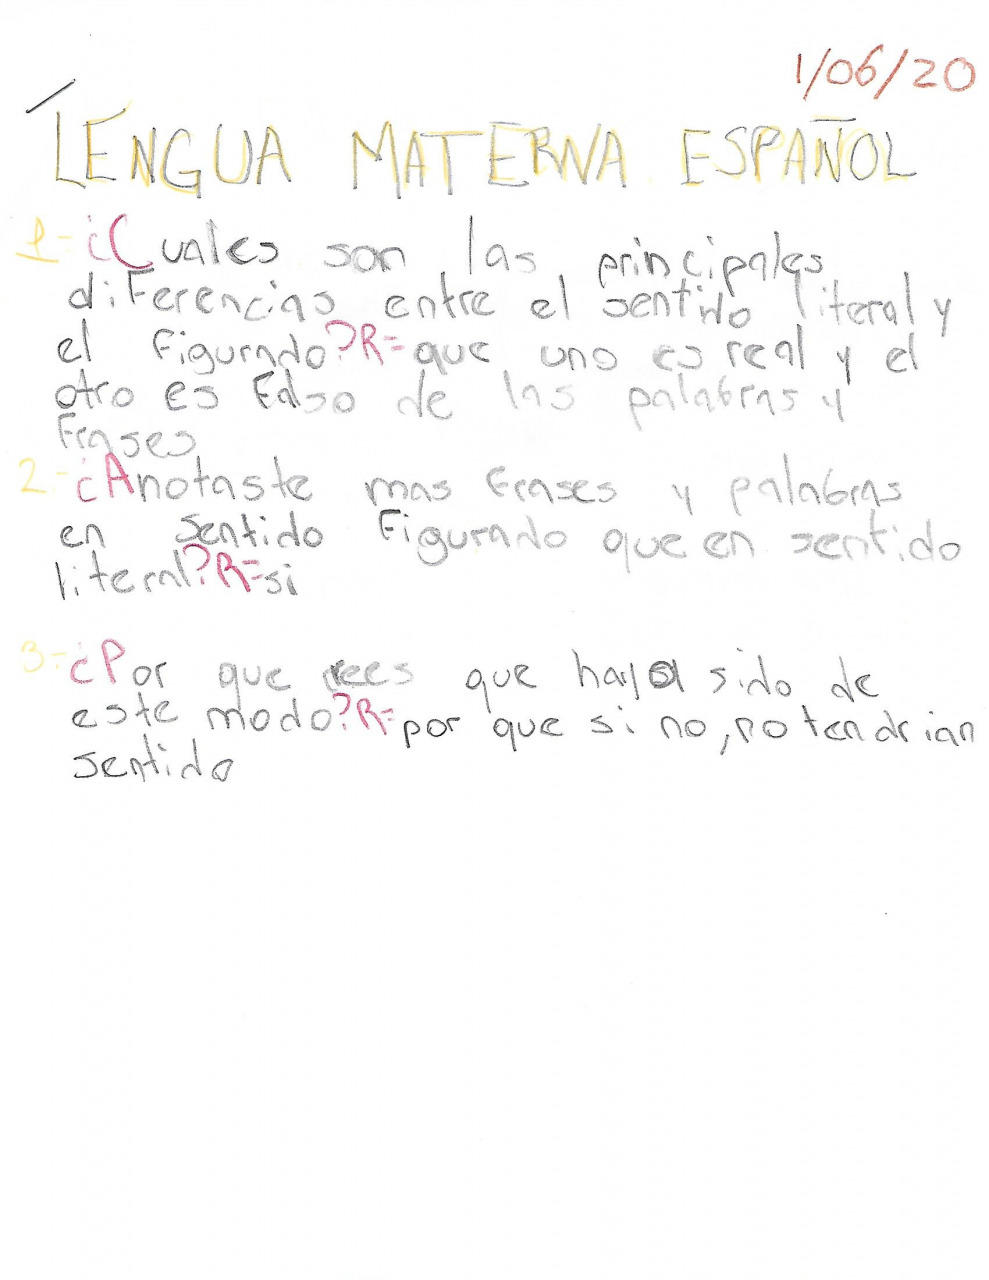 1/06/20
LENGUA MATERNA ESPAÑOL
1-¿Cuales son las principales
diferencias entre el sentido literal y
el figurado?R=que uno es real y el
otro es falso de las palabras y
frases
2-¿Anotaste mas frases y palabras
en sentido figurado que en sentido
literal?R=si
3-¿Por que crees que haya sido de
este modo?R=por que si no,no tendrian
sentido